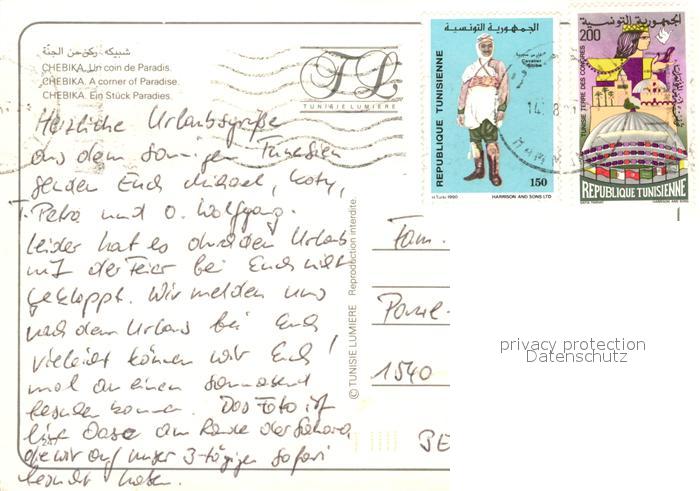 شبيكه - ركن من الجنّة
CHEBIKA. Un coin de Paradis.
CHEBIKA. A corner of Paradise.
CHEBIKA. Ein Stück Paradies.
TL
TUNISIE LUMIERE
الجمهورية التونسية
REPUBLIQUE TUNISIENNE
Cavalier
150
HARRISON AND SONS LTD
الجمهورية التونسية
200
TUNISIE TERRE DES CONGRES
REPUBLIQUE TUNISIENNE
Herzliche Urlaubsgrüße
aus dem sonnigen Tunesien
senden Euch Michael, Katy,
T. Petra und O. Wolfgang.
Leider hat es durch den Urlaub
mit der Feier bei Euch nicht
geklappt. Wir melden uns
nach dem Urlaub bei Euch
vielleicht können wir Euch
mal an einen Sonnabend
besuchen kommen. Das Foto ist
eine Oase am Rande der Sahara,
die wir auf unser 3-tägigen Safari
besucht haben.
© TUNISIE LUMIERE Reproduction interdite.
Fam.
1540
BE
privacy protection
Datenschutz